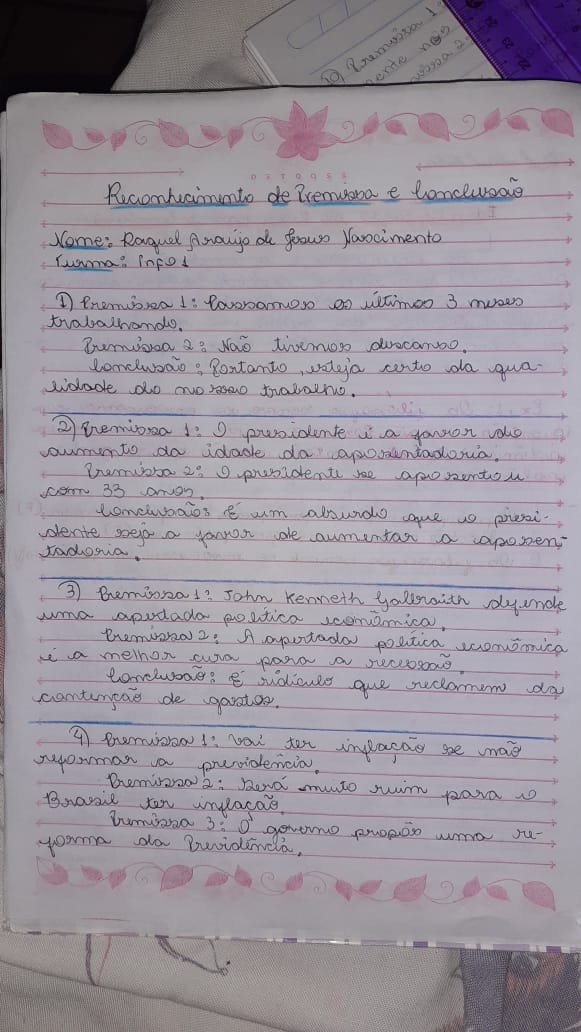 10) Premissa 1:
ente nos
issa 2
Reconhecimento de Premissa e Conclusão
Nome: Raquel Araújo de Jesus Nascimento
Turma: Info 1
1) Premissa 1: Passamos os últimos 3 meses
trabalhando.
Premissa 2: Não tivemos descanso.
Conclusão: Portanto, esteja certo da qua-
lidade do nosso trabalho.
2) Premissa 1: O presidente é a favor do
aumento da idade da aposentadoria.
Premissa 2: O presidente se aposentou
com 33 anos.
Conclusão: É um absurdo que o presi-
dente seja a favor de aumentar a aposen-
tadoria.
3) Premissa 1: John Kenneth Galbraith defende
uma apertada política econômica.
Premissa 2: A apertada política econômica
é a melhor cura para a recessão.
Conclusão: É ridículo que reclamem da
contenção de gastos.
4) Premissa 1: Vai ter inflação se não
reformar a previdência.
Premissa 2: Será muito ruim para o
Brasil ter inflação.
Premissa 3: O governo propôs uma re-
forma da Previdência.